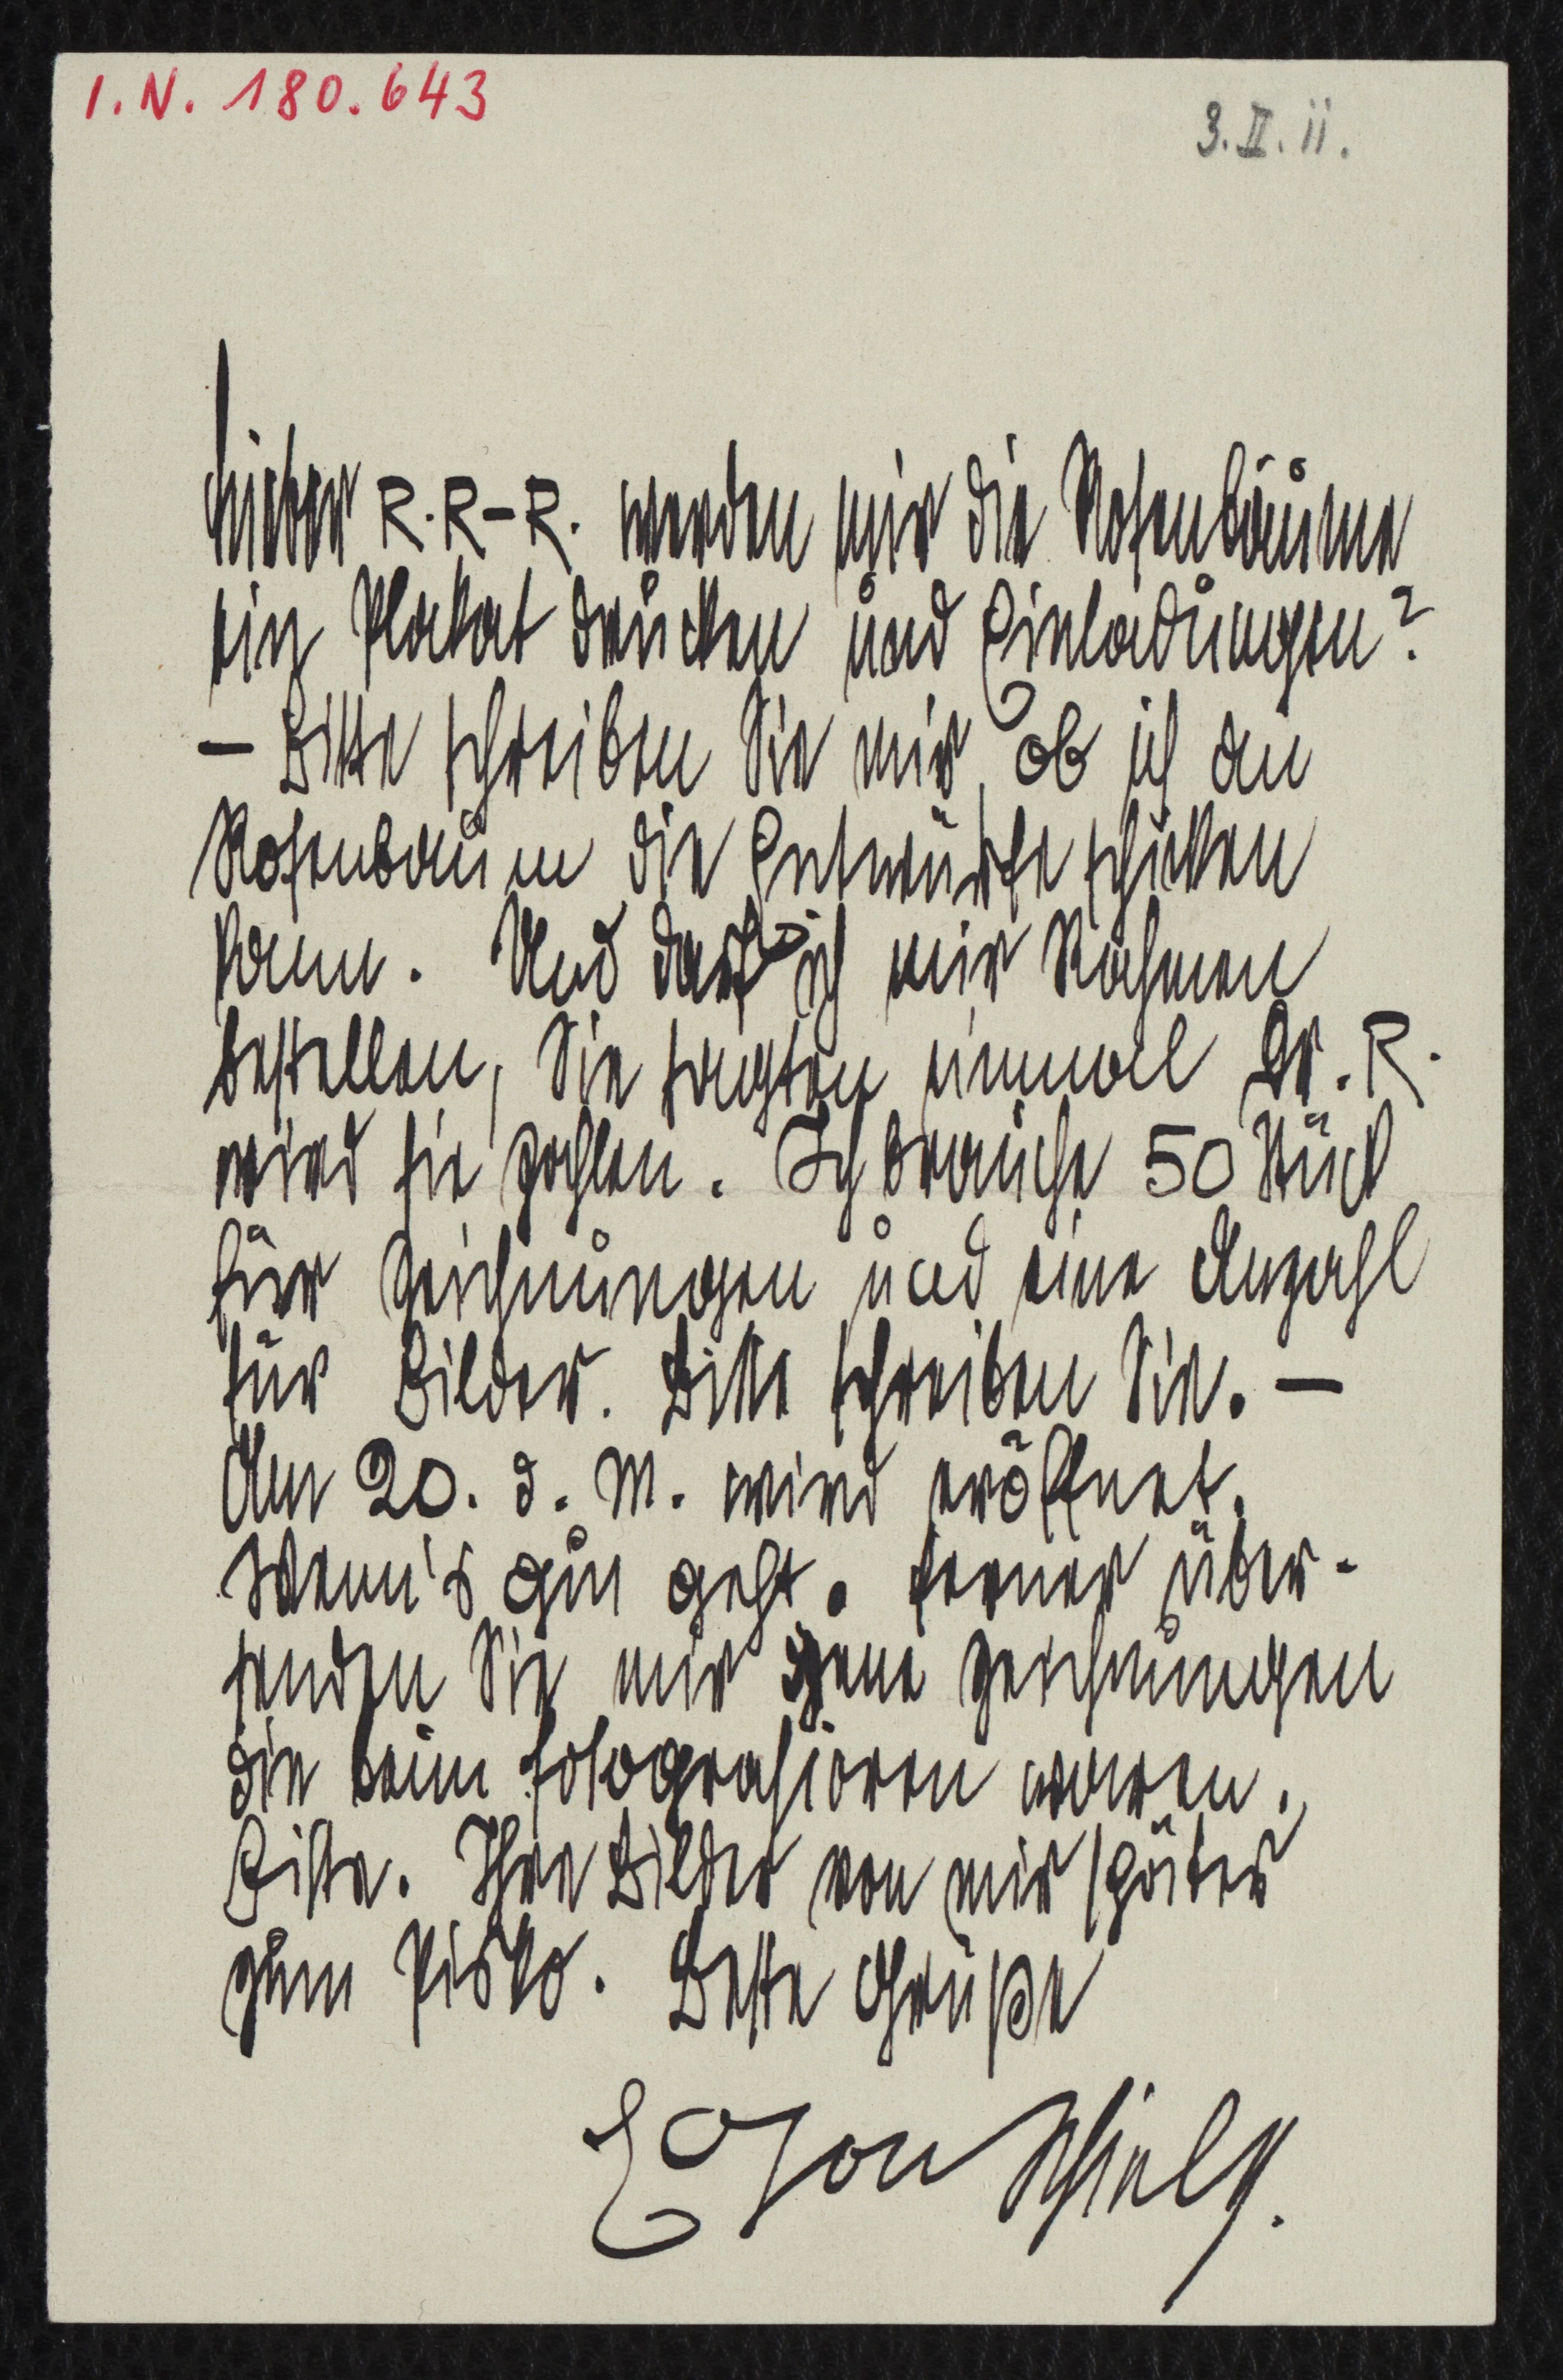 I.N. 180.643
3.II.11.
Lieber R.R-R. werden mir die Rosenbäume
ein Plakat drucken und Einladungen?
– Bitte schreiben Sie mir, ob ich an
Rosenbaum die Entwürfe schicken
kann. Und darf ich mir Rahmen
bestellen, Sie sagten einmal Dr. R.
wird sie zahlen. Ich brauche 50 Stück
für Zeichnungen und eine Anzahl
für Bilder. Bitte schreiben Sie. –
Am 20. d. M. wird eröffnet.
Wenn's gut geht. Ferner über-
senden Sie mir jene Zeichnungen
die beim fotografieren waren.
Bitte. Ihre Bilder von mir später
zum Pisko. Beste Grüße
Egon Schiele.